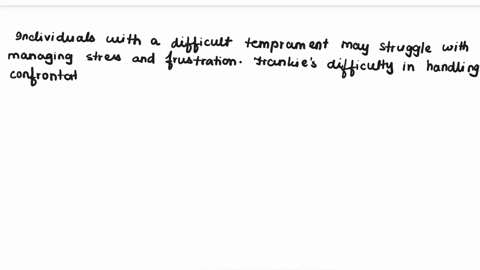 Individuals with a difficult temprament may struggle with
managing stress and frustration. Frankie's difficulty in handling
confrontat